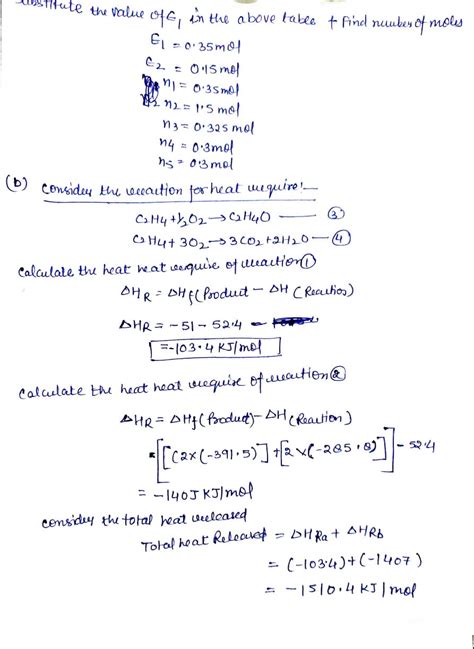 Substitute the value of ε₁ in the above table + find number of moles
ε₁ = 0.35mol
ε₂ = 0.15mol
n₁ = 0.35mol
n₂ = 1.5 mol
n₃ = 0.325 mol
n₄ = 0.3mol
n₅ = 0.3mol
(b) Consider the reaction for heat require:-
C₂H₄ + ½O₂ → C₂H₄O — ③
C₂H₄ + 3O₂ → 3CO₂ + 2H₂O — ④
Calculate the heat heat require of reaction ①
ΔHR = ΔHf (Product – ΔH (Reaction)
ΔHR = -51 - 52.4
= -103.4 KJ/mol
Calculate the heat heat require of reaction ②
ΔHR = ΔHf (Product) – ΔH (Reaction)
= [[(2x(-391.5)] + [2x(-285.8)]] - 52.4
= -140J KJ/mol
Consider the total heat released
Total heat Released = ΔHRa + ΔHRb
= (-103.4) + (-1407)
= -1510.4 KJ/mol